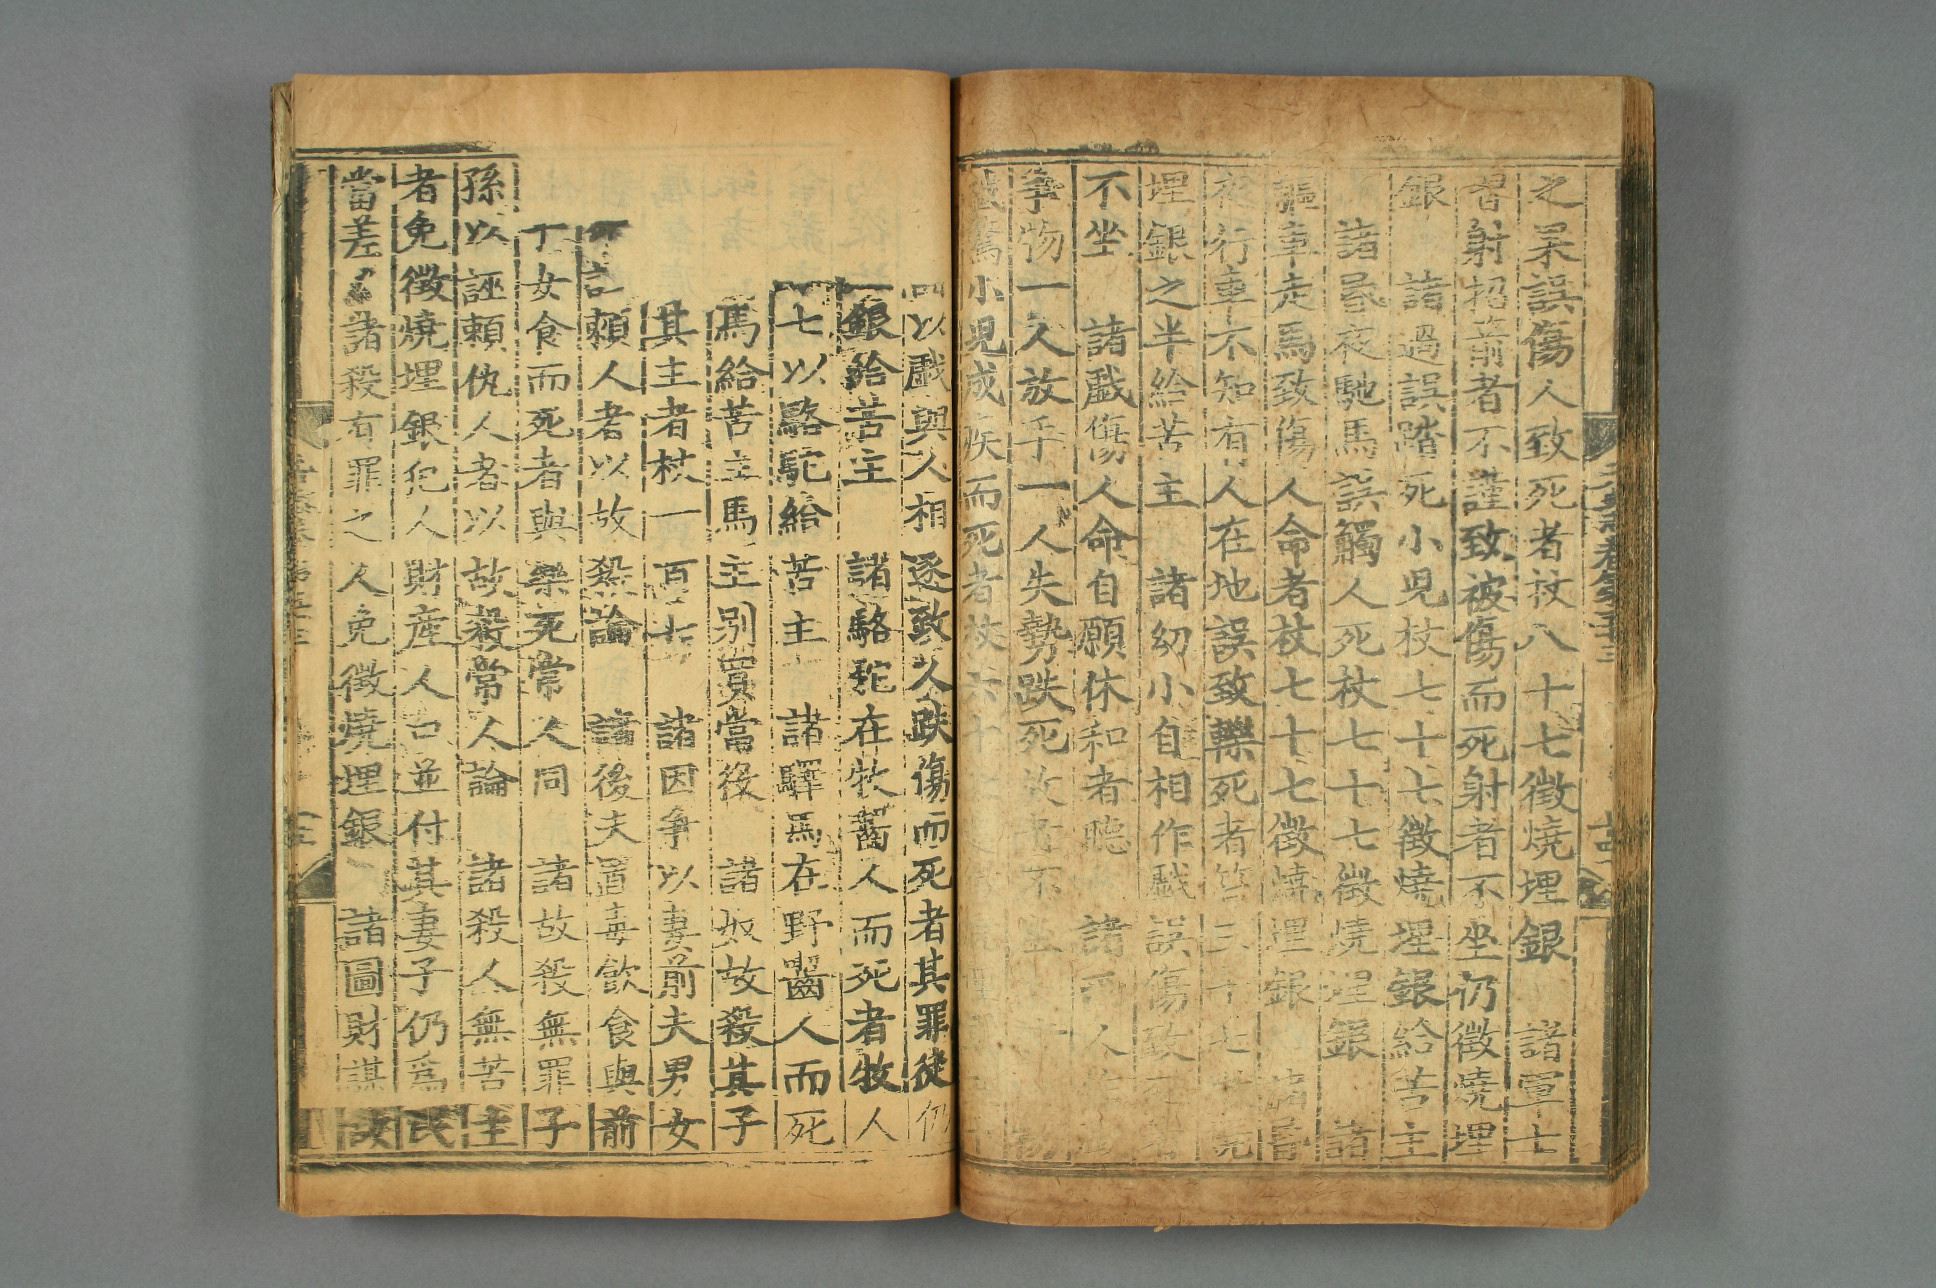 之杲誤傷人致死者杖八十七徵燒埋銀 諸軍士
習射招箭者不謹致被傷而死射者不坐仍徵燒埋
銀 諸過誤踏死小兒杖七十七徵燒埋銀給苦主
諸昬夜馳馬誤觸人死杖七十七徵燒埋銀 諸
驅車走馬致傷人命者杖七十七徵燒埋銀 諸昏
夜行車不知有人在地誤致轢死者笞三十七
埋銀之半給苦主 諸幼小自相作戲誤傷致死者
不坐 諸戲傷人命自願休和者聽 諸兩人作
爭物一人放手一人失勢跌死放者不坐
驚小兒成疾而死者杖六十七
以戲與人相逐致人跌傷而死者其罪徒仍
銀給苦主 諸駱駝在牧齧人而死者牧人
七以駱駝給苦主 諸驛馬在野齧人而死
馬給苦主馬主別買當役 諸奴故殺其子女
其主者杖一百七 諸因爭以妻前夫男女
賴人者以故殺論 諸後夫置毒飲食與前
子女食而死者與藥死常人同 諸故殺無罪子
孫以誣賴仇人者以故殺常人論 諸殺人無苦主
者免徵燒埋銀犯人財產人口並付其妻子仍爲民
當差 諸殺有罪之人免徵燒埋銀 諸圖財謀故